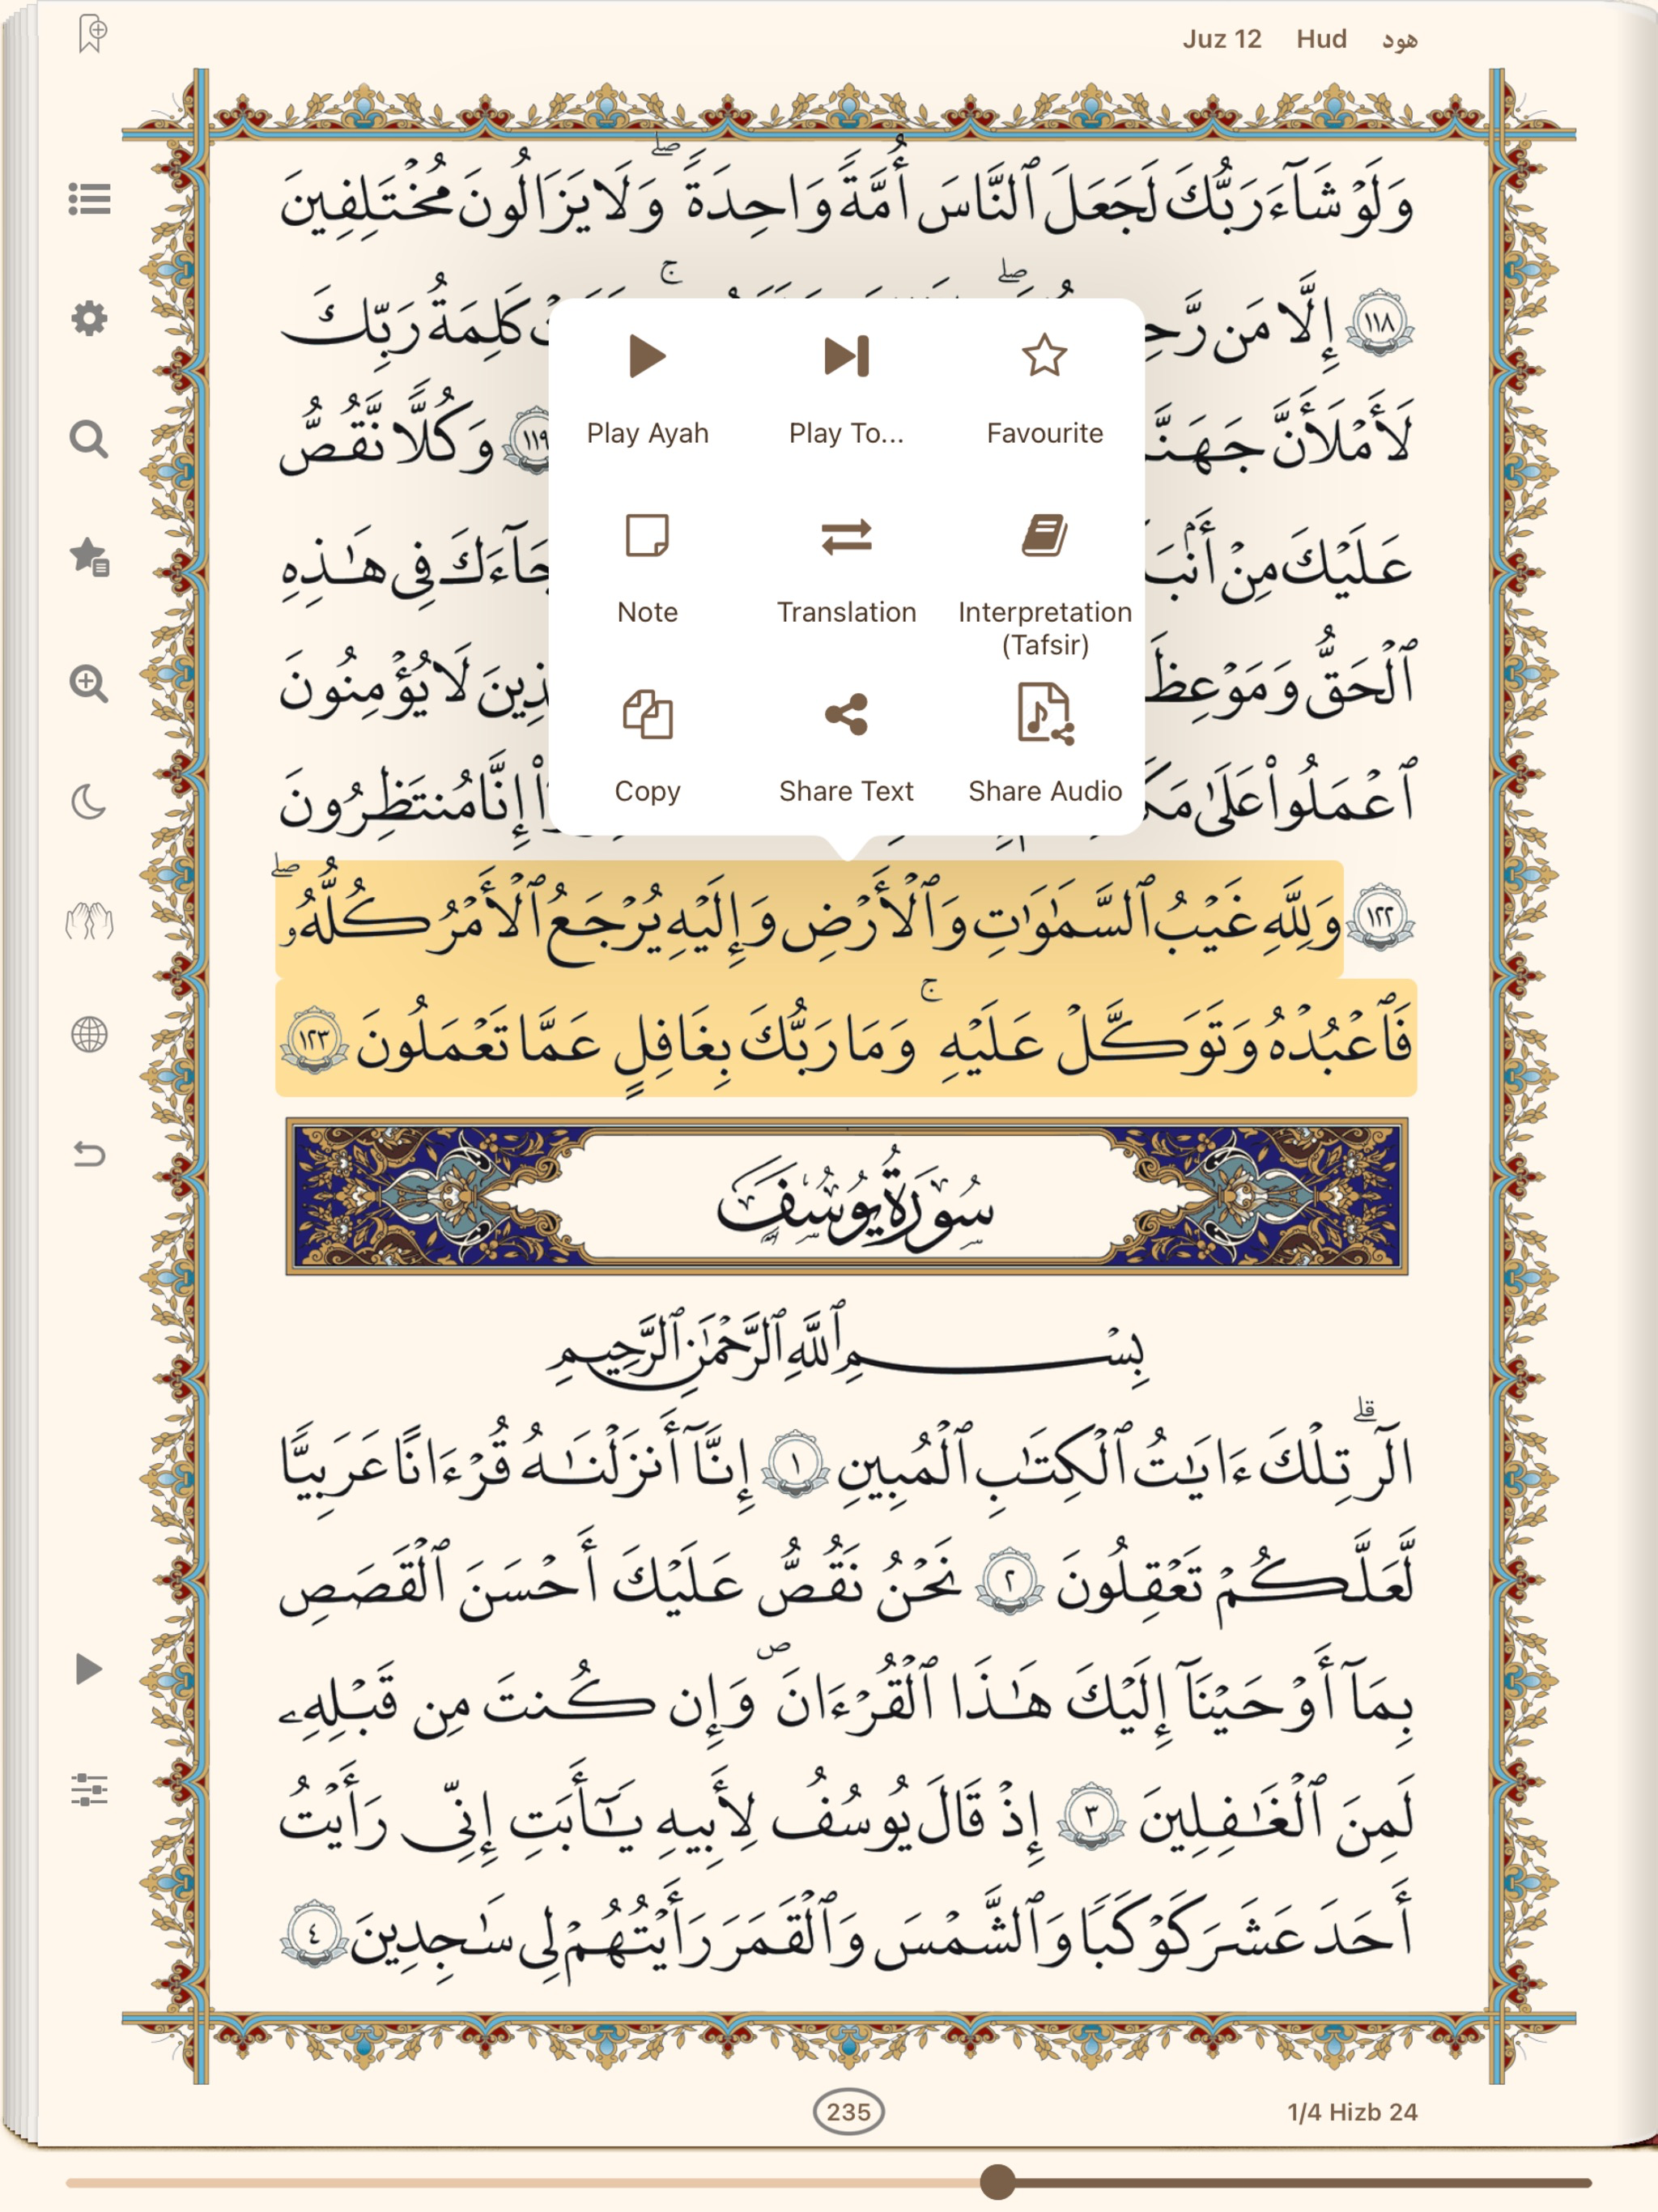 Juz 12 Hud هود
وَلَوْ شَآءَ رَبُّكَ لَجَعَلَ ٱلنَّاسَ أُمَّةً وَٰحِدَةً ۖ وَلَا يَزَالُونَ مُخْتَلِفِينَ
١١٨ إِلَّا مَن كَلِمَةُ رَبِّكَ
لَأَمْلَأَنَّ ١١٩ وَكُلًّا نَّقُصُّ
عَلَيْكَ مِنْ فِى هَـٰذِهِ
ٱلْحَقُّ لَا يُؤْمِنُونَ
ٱعْمَلُوا۟ عَلَىٰ إِنَّا مُنتَظِرُونَ
Play Ayah Play To... Favourite
Note Translation Interpretation
(Tafsir)
Copy Share Text Share Audio
١٢٢ وَلِلَّهِ غَيْبُ ٱلسَّمَـٰوَٰتِ وَٱلْأَرْضِ وَإِلَيْهِ يُرْجَعُ ٱلْأَمْرُ كُلُّهُۥ ۖ
فَٱعْبُدْهُ وَتَوَكَّلْ عَلَيْهِ ۚ وَمَا رَبُّكَ بِغَـٰفِلٍ عَمَّا تَعْمَلُونَ ١٢٣
سُورَةُ يُوسُفَ
بِسْمِ ٱللَّهِ ٱلرَّحْمَـٰنِ ٱلرَّحِيمِ
الٓر ۚ تِلْكَ ءَايَـٰتُ ٱلْكِتَـٰبِ ٱلْمُبِينِ ١ إِنَّآ أَنزَلْنَـٰهُ قُرْءَٰنًا عَرَبِيًّا
لَّعَلَّكُمْ تَعْقِلُونَ ٢ نَحْنُ نَقُصُّ عَلَيْكَ أَحْسَنَ ٱلْقَصَصِ
بِمَآ أَوْحَيْنَآ إِلَيْكَ هَـٰذَا ٱلْقُرْءَانَ وَإِن كُنتَ مِن قَبْلِهِۦ
لَمِنَ ٱلْغَـٰفِلِينَ ٣ إِذْ قَالَ يُوسُفُ لِأَبِيهِ يَـٰٓأَبَتِ إِنِّى رَأَيْتُ
أَحَدَ عَشَرَ كَوْكَبًا وَٱلشَّمْسَ وَٱلْقَمَرَ رَأَيْتُهُمْ لِى سَـٰجِدِينَ ٤
235 1/4 Hizb 24